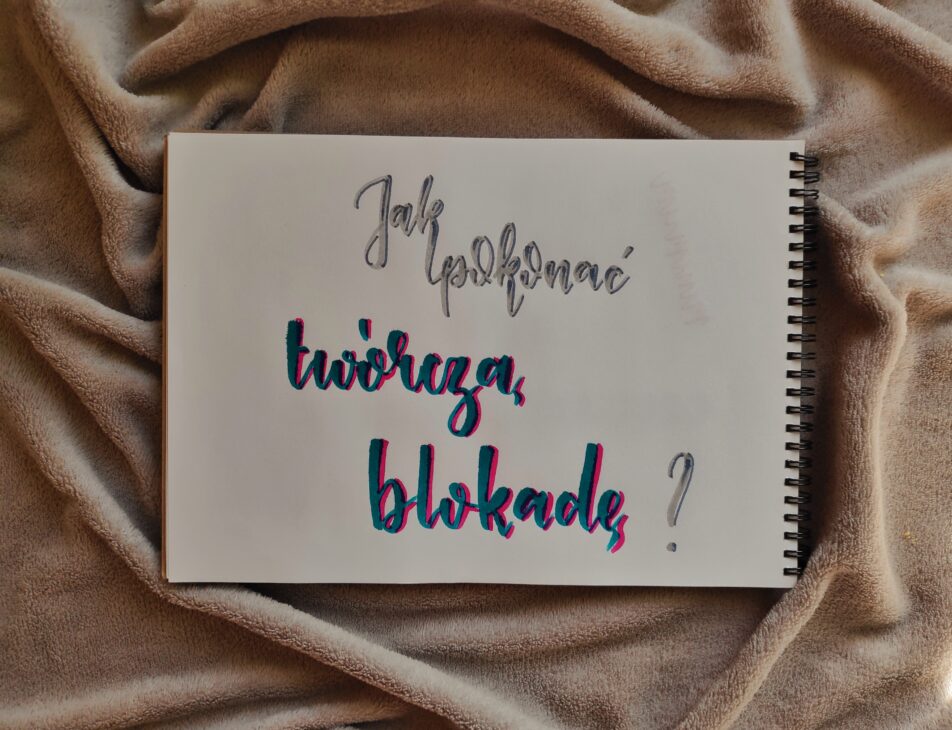 Jak
pokonać
twórczą
blokadę ?